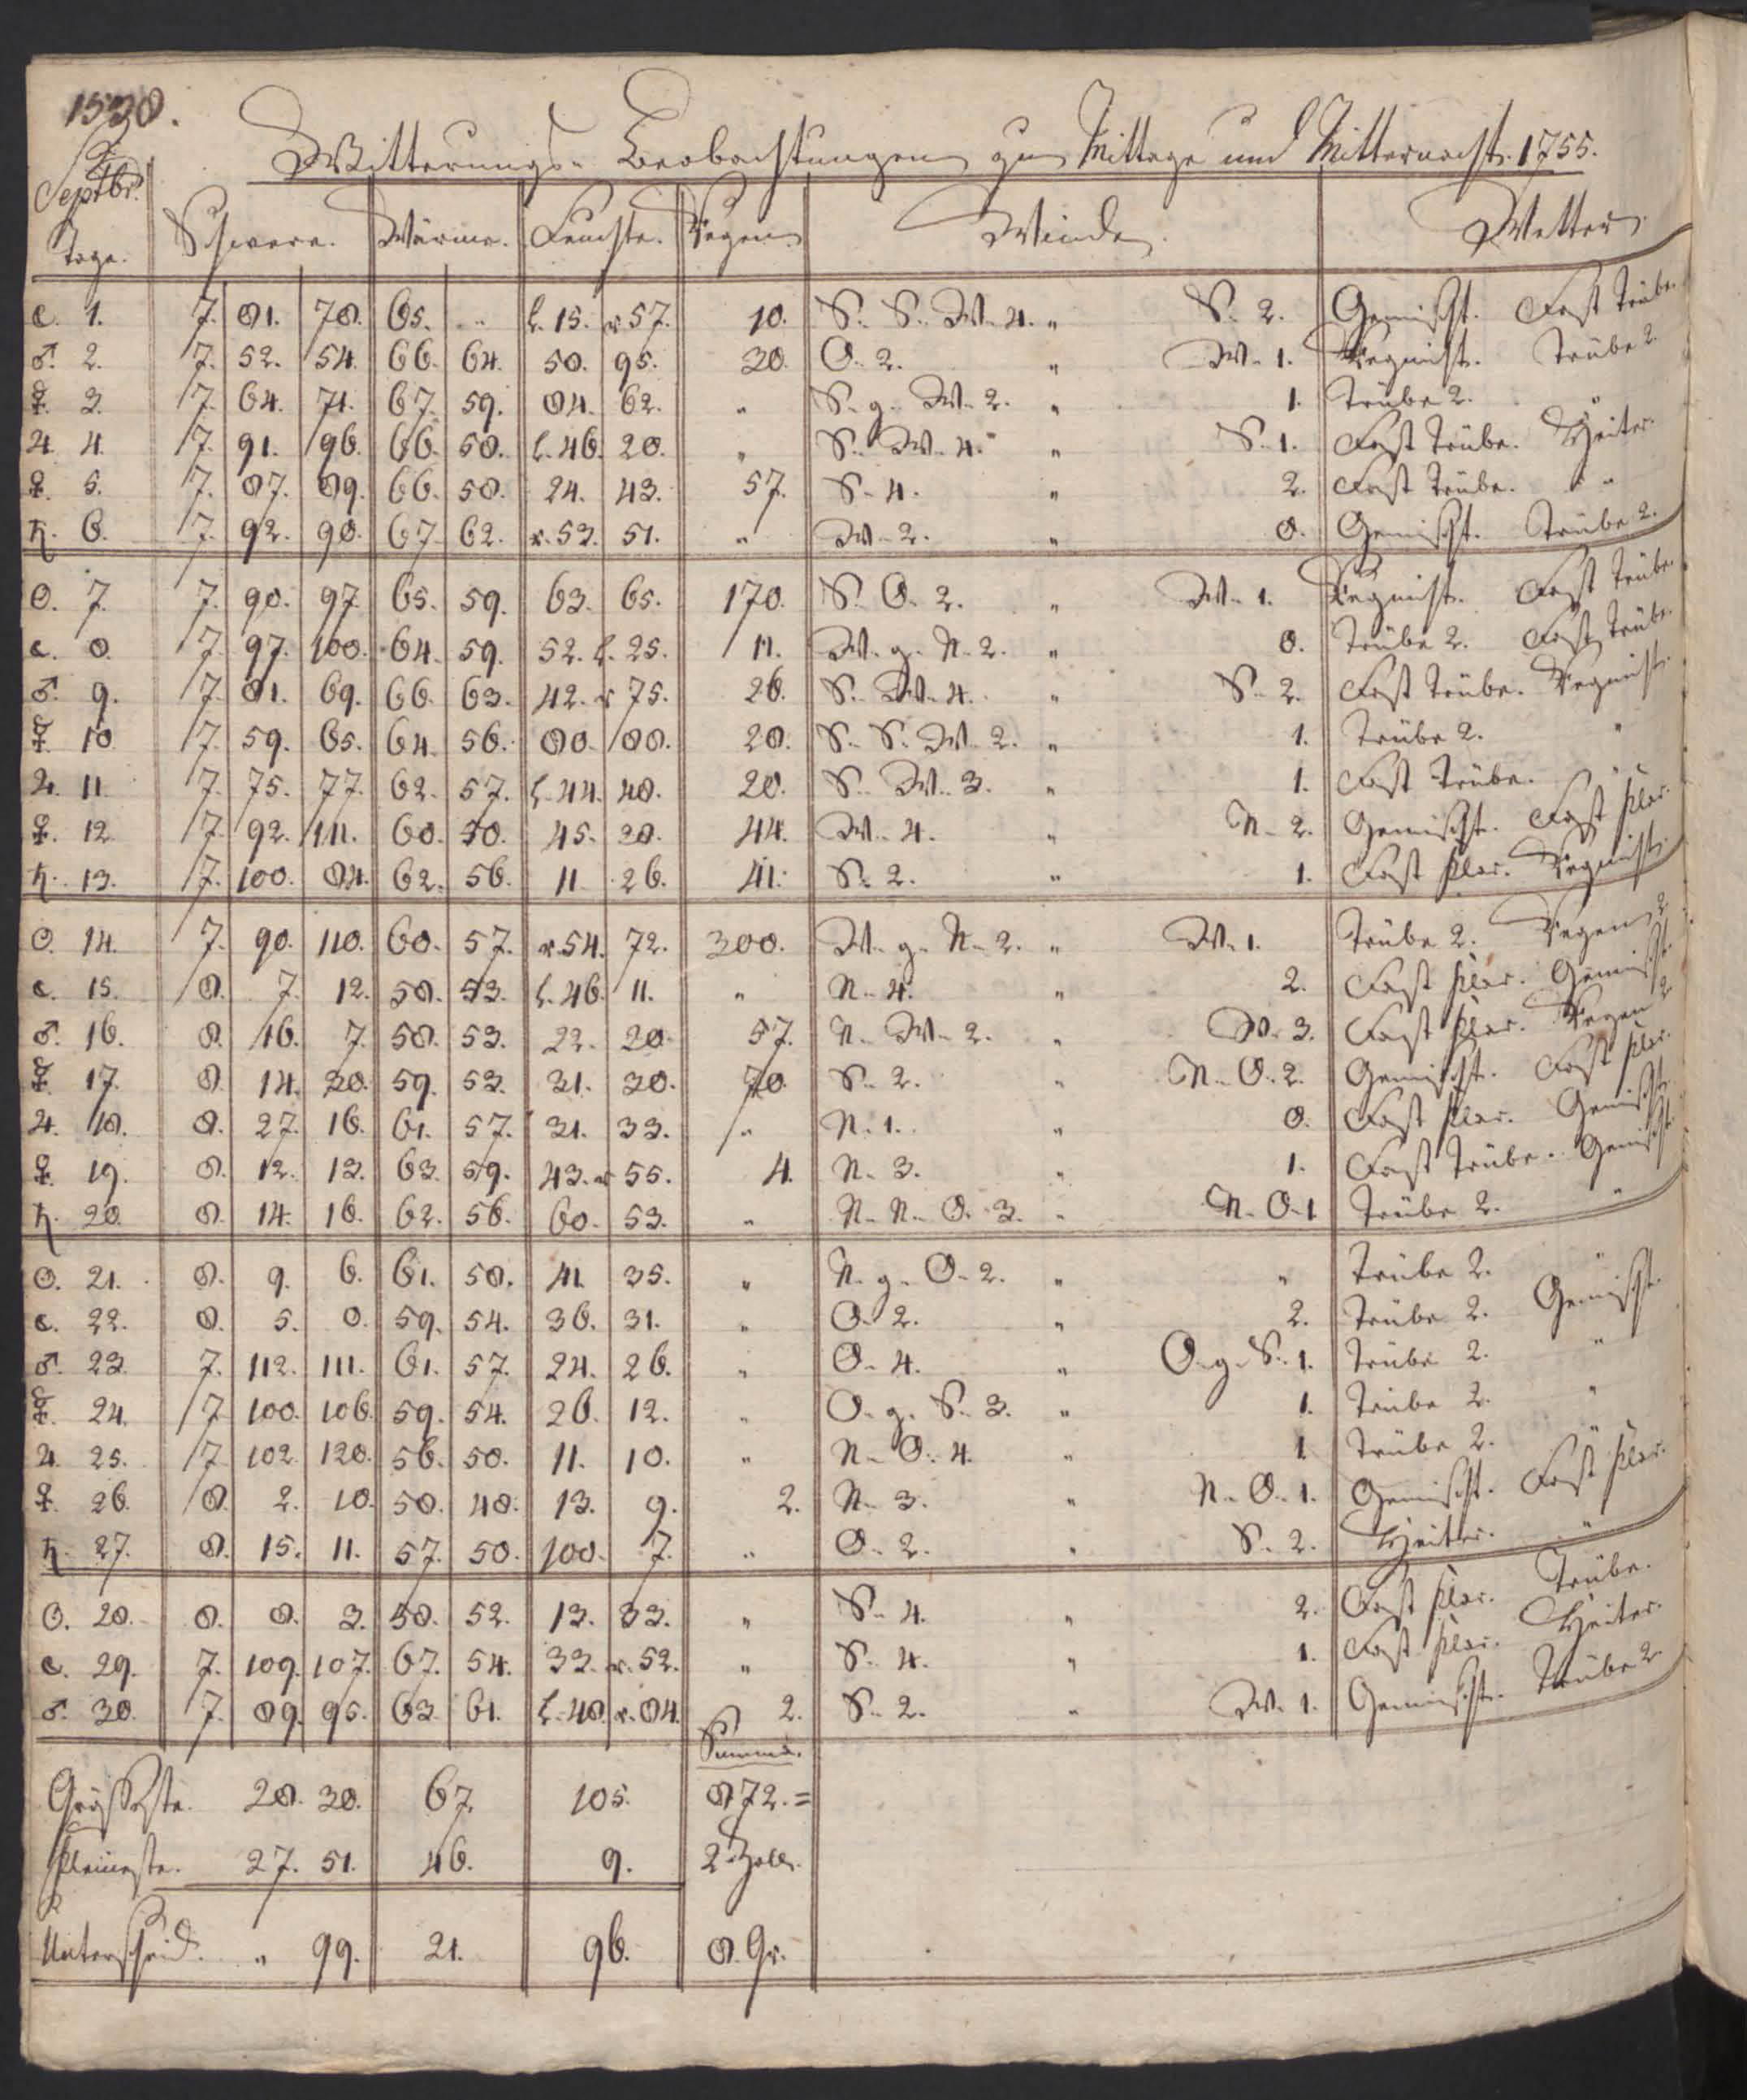 1538.
Witterungs-Beobachtungen zu Mittage und Mitternacht. 1755.
Septbr.
Tage. Schwere. Wärme. Feuchte. Regen Winde. Wetter.
☾. 1. 7. 81. 78. 65. .. l. 15. r 57. 10. S. S. W. 4. „ S. 2. Gemischt. Fast trübe.
♂. 2. 7. 52. 54. 66. 64. 50. 95. 30. O. 2. „ W. 1. Regnicht. Trübe 2.
☿. 3. 7. 64. 71. 67. 59. 84. 62. „ S. g. W. 2. „ 1. Trübe 2. „
♃ 4. 7. 91. 96. 66. 58. l. 46. 20. „ S. W. 4. „ S. 1. Fast trübe. Heiter.
♀. 5. 7. 87. 89. 66. 58. 24. 43. 57. S. 4. „ 2. Fast trübe. „
♄. 6. 7. 92. 98. 67. 62. r. 53. 51. „ W. 2. „ 0. Gemischt. Trübe 2.
☉. 7. 7. 90. 97. 65. 59. 63. 65. 170. S. O. 2. „ W. 1. Regnicht. Fast trübe.
☾. 8. 7. 97. 100. 64. 59. 52. l. 25. 11. W. g. N. 2. „ 0. Trübe 2. Fast trübe.
♂. 9. 7. 81. 69. 66. 63. 42. r 75. 26. S. W. 4. „ S. 2. Fast trübe. Regnicht.
☿. 10 7. 59. 65. 64. 56. 80. 88. 20. S. S. W. 2. „ 1. Trübe 2. „
♃. 11. 7. 75. 77. 62. 57. l. 44. 48. 20. S. W. 3. „ 1. Fast trübe. „
♀. 12. 7. 92. 111. 60. 50. 45. 28. 44. W. 4. „ N. 2. Gemischt. Fast klar.
♄. 13. 7. 108. 84. 62. 56. 11. 26. 41. S. 2. „ 1. Fast klar. Regnicht.
☉. 14. 7. 90. 110. 60. 57. r. 54. 72. 300. W. g. N. 2. „ W. 1. Trübe 2. Regen 2.
☾. 15. 8. 7. 12. 58. 53. l. 46. 11. „ N. 4. „ 2. Fast klar. Gemischt.
♂. 16. 8. 16. 7. 58. 53. 22. 20. 57. N. W. 2. „ W. 3. Fast klar. Regen 2
☿. 17. 8. 14. 30. 59. 53. 31. 30. 70. S. 2. „ N. O. 2. Gemischt. Fast klar.
♃. 18. 8. 27. 16. 61. 57. 31. 33. „ N. 1. „ 0. Fast klar. Gemischt.
♀. 19. 8. 12. 13. 63. 59. 43. r 55. 4. N. 3. „ 1. Fast trübe. Gemischt.
♄. 20. 8. 14. 16. 62. 56. 60. 53. „ N. N. O. 3. „ N. O. 1 Trübe 2. „
☉. 21. 8. 9. 6. 61. 58. 41. 35. „ N. g. O. 2. „ „ Trübe 2. „
☾. 22. 8. 5. 0. 59. 54. 36. 31. „ O. 2. „ 2. Trübe 2. Gemischt.
♂. 23. 7. 112. 111. 61. 57. 24. 26. „ O. 4. „ O. g. S. 1. Trübe 2. „
☿. 24. 7. 108. 106. 59. 54. 26. 12. „ O. g. S. 3. „ 1. Trübe 2. „
♃. 25. 7. 102. 120. 56. 50. 11. 10. „ N. O. 4. „ 1. Trübe 2. „
♀. 26. 8. 2. 10. 50. 48. 13. 9. 2. N. 3. „ N. O. 1. Gemischt. Fast klar.
♄. 27. 8. 15. 11. 57. 50. 100. 7. „ O. 2. „ S. 2. Heiter. „
☉. 28. 8. 8. 3. 58. 52. 13. 33. „ S. 4. „ 2. Fast klar. Trübe.
☾. 29. 7. 109. 107. 67. 54. 33. r. 52. „ S. 4. „ 1. Fast klar. Heiter.
♂. 30. 7. 89. 95. 63. 61. l. 48. r. 84. 2. S. 2. „ W. 1. Gemischt. Trübe 2.
Summa.
Grösseste. 28. 30. 67. 105. 872. =
Kleineste. 27. 51. 46. 9. 2 Zoll.
Unterscheid. „ 99. 21. 96. 8. Gr.